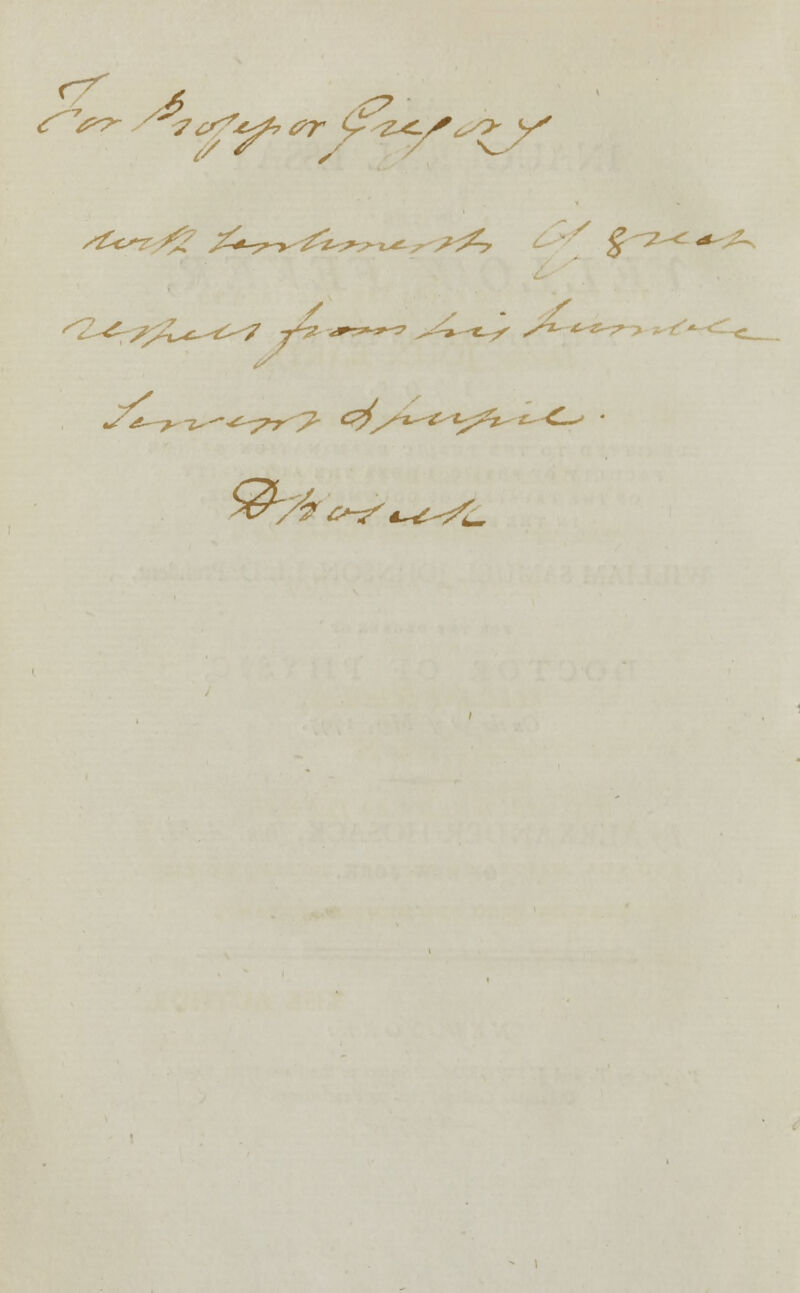 For Professor Gregory
with Sentiments of great
respect from his humble
Servant & pupil.
DHosack